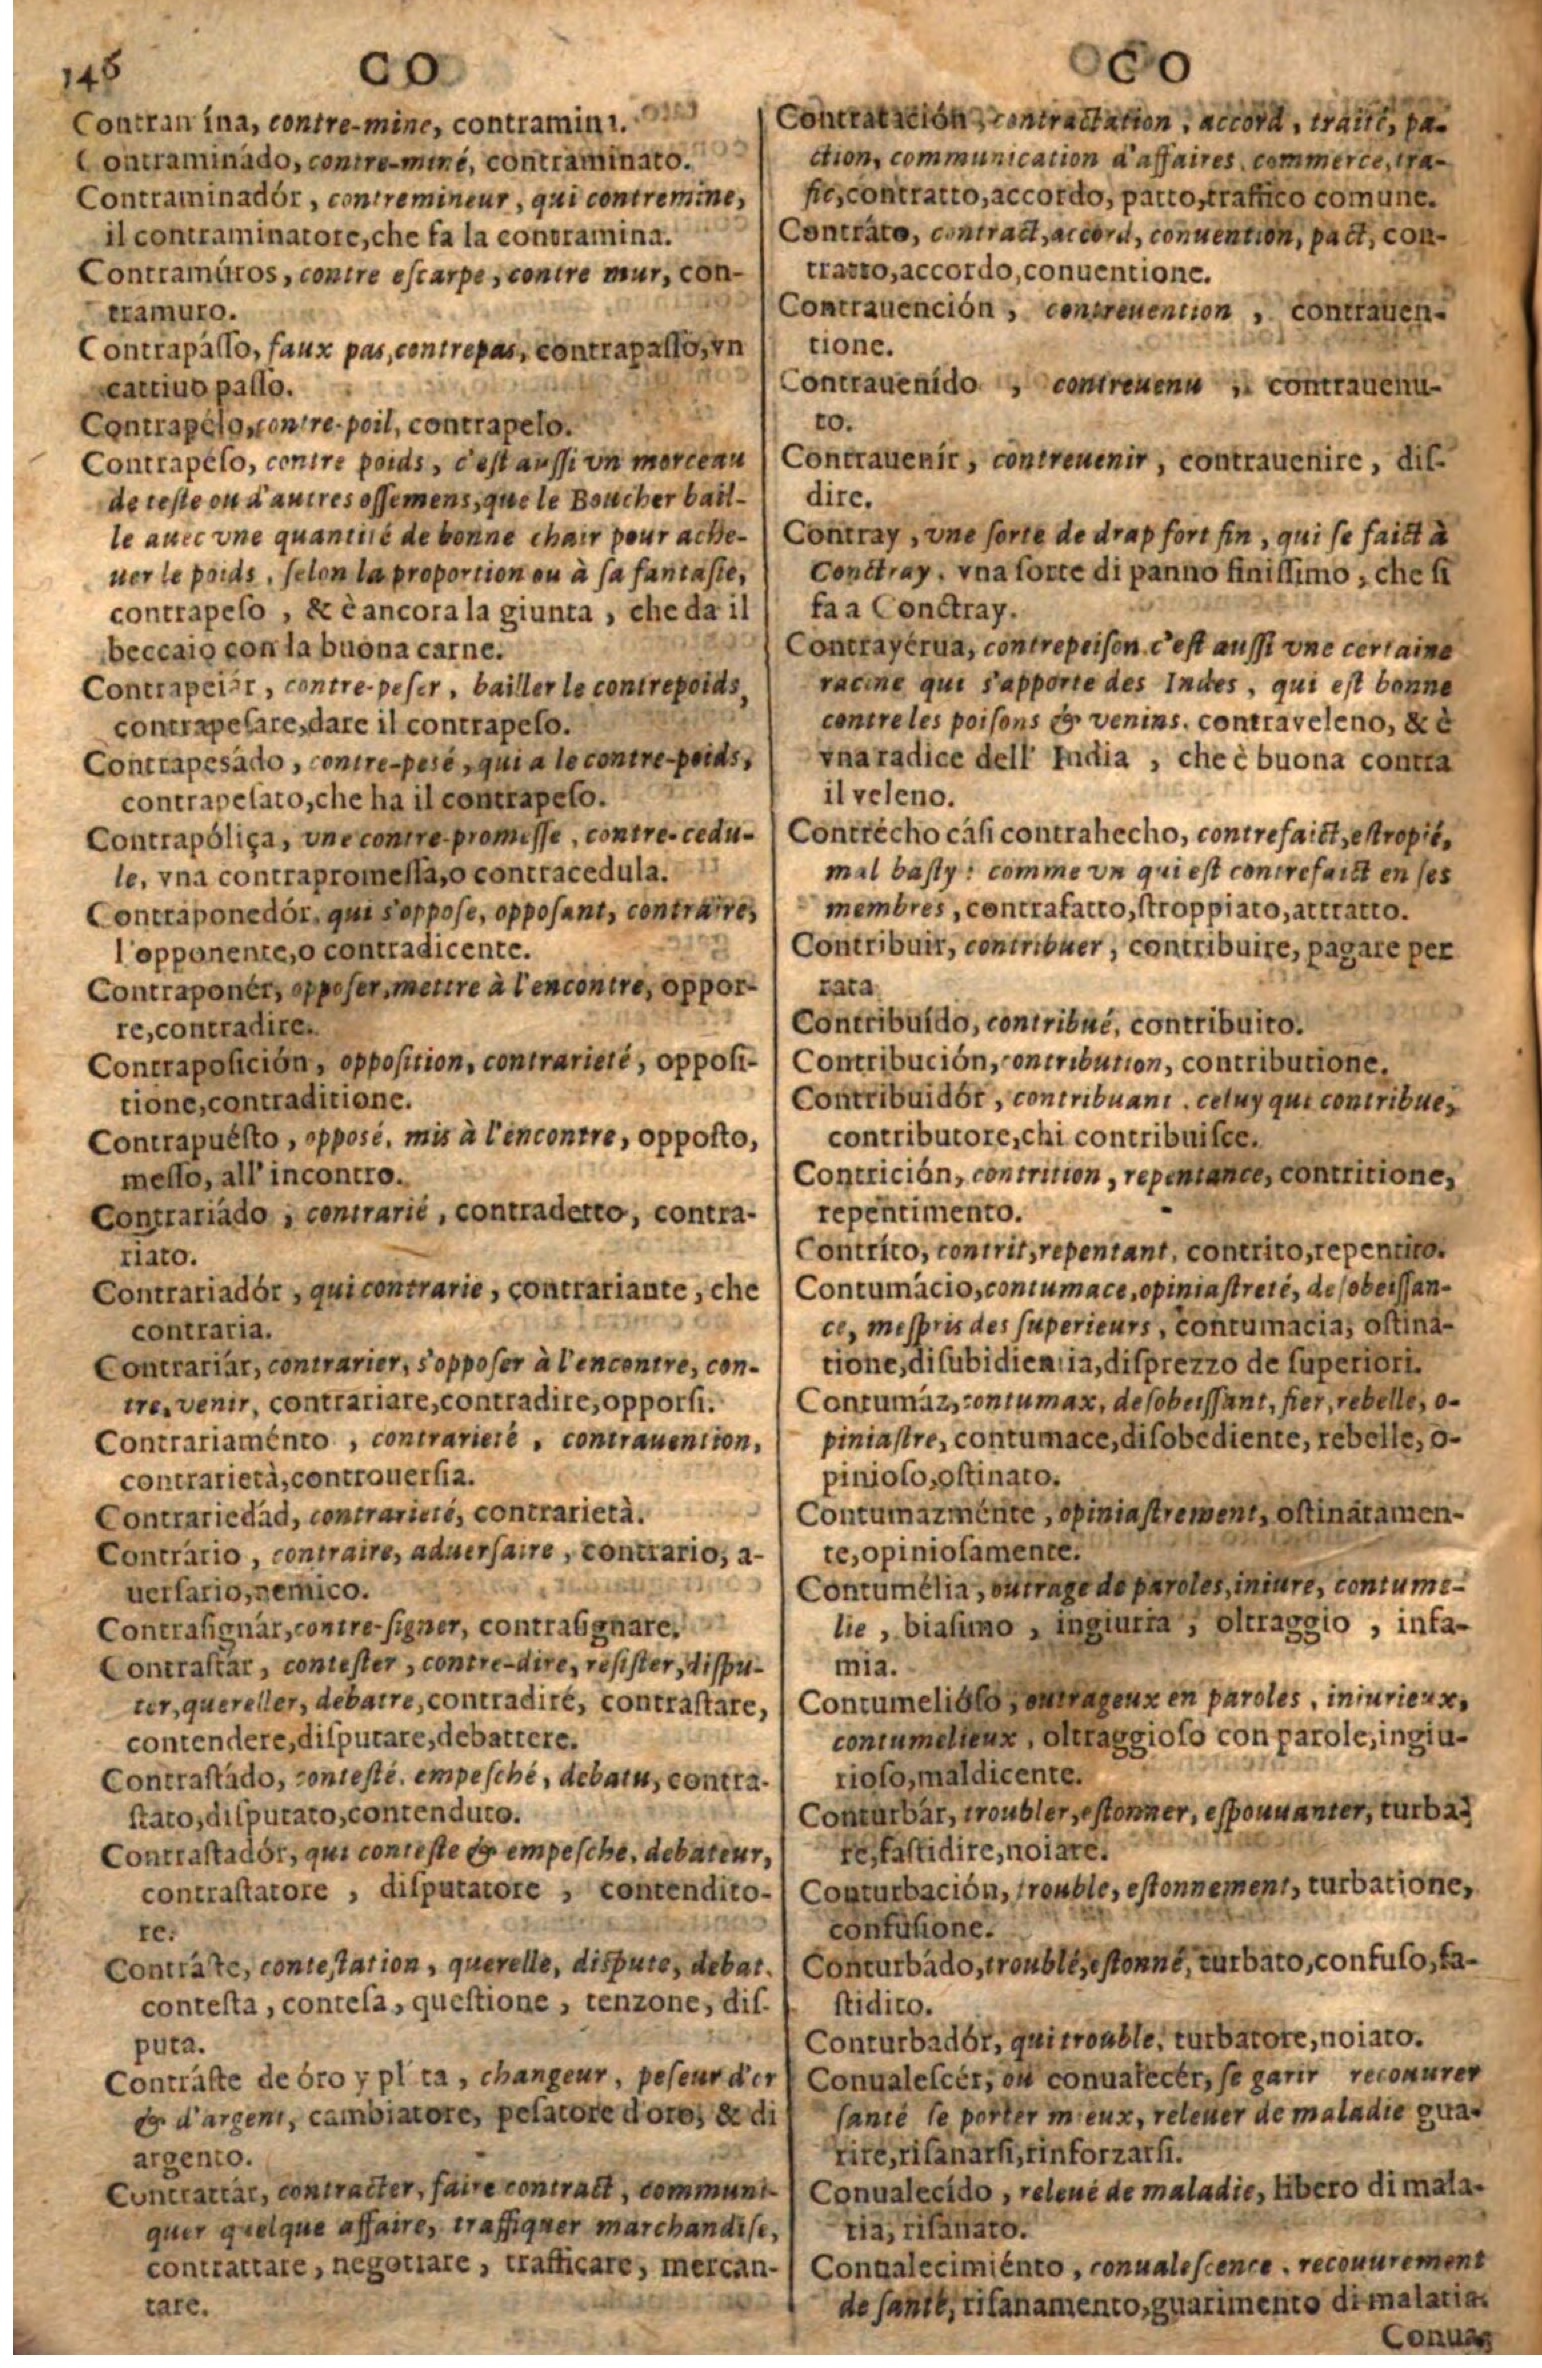 146 CO
Contramína, contre-mine, contramina.
Contramináđo, contre-miné, contraminato.
Contraminadór, contremineur, qui contremine,
il contraminatore,che fa la contramina.
Contramúros, contre eſcarpe, contre mur, con-
tramuro.
Contrapáſſo, faux pas,contrepas, contrapaſſo,vn
cattiuo paſſo.
Contrapélo,contre-poil, contrapelo.
Contrapéſo, contre poids, c'eſt auſſi vn morceau
de teſte ou d'autres oſſemens,que le Boucher bail-
le auec vne quantité de bonne chair pour ache-
uer le poids, ſelon la proportion ou à ſa fantaſie,
contrapeſo, & è ancora la giunta, che da il
beccaio con la buona carne.
Contrapeſár, contre-peſer, bailler le contrepoids,
contrapeſare,dare il contrapeſo.
Contrapesádo, contre-pesé, qui a le contre-poids,
contrapeſato,che ha il contrapeſo.
Contrapóliça, vne contre-promeſſe, contre-cedu-
le, vna contrapromeſſa,o contracedula.
Contraponedór, qui s'oppoſe, oppoſant, contraire,
l'opponente,o contradicente.
Contraponér, oppoſer,mettre à l'encontre, oppor-
re,contradire.
Contrapoſición, oppoſition, contrarieté, oppoſi-
tione,contraditione.
Contrapuéſto, opposé, mis à l'encontre, oppoſto,
meſſo, all' incontro.
Contrariádo, contrarié, contradetto, contra-
riato.
Contrariadór, qui contrarie, contrariante, che
contraria.
Contrariár, contrarier, s'oppoſer à l'encontre, con-
tre,venir, contrariare,contradire,opporſi.
Contrariaménto, contrarieté, contrauention,
contrarietà,controuerſia.
Contrariedád, contrarieté, contrarietà.
Contrário, contraire, aduerſaire, contrario, a-
uerſario,nemico.
Contraſignár,contre-ſigner, contraſignare.
Contraſtár, conteſter, contre-dire, reſiſter,diſpu-
ter,quereller, debatre,contradire, contraſtare,
contendere,diſputare,debattere.
Contraſtádo, conteſté, empeſché, debatu, contra-
ſtato,diſputato,contenduto.
Contraſtadór, qui conteſte & empeſche, debateur,
contraſtatore, diſputatore, contendito-
re.
Contráſte, conteſtation, querelle, diſpute, debat.
conteſta, conteſa, queſtione, tenzone, diſ-
puta.
Contráſte de óro y pláta, changeur, peſeur d'or
& d'argent, cambiatore, peſatore d'oro, & di
argento.
Contrattár, contracter, faire contract, communi-
quer quelque affaire, traffiquer marchandiſe,
contrattare, negotiare, trafficare, mercan-
tare.
CO
Contratación, contractation, accord, traité, pa-
ction, communication d'affaires, commerce, tra-
fic,contratto,accordo, patto,traffico comune.
Contráto, contract,accord, conuention, pact, con-
tratto,accordo,conuentione.
Contrauención, contreuention, contrauen-
tione.
Contrauenído, contreuenu, contrauenu-
to.
Contrauenír, contreuenir, contrauenire, diſ-
dire.
Contray, vne ſorte de drap fort fin, qui ſe faict à
Conctray. vna ſorte di panno finiſſimo, che ſi
fa a Conctray.
Contrayérua, contrepoiſon c'eſt auſſi vne certaine
racine qui s'apporte des Indes, qui eſt bonne
contre les poiſons & venins. contraveleno, & è
vna radice dell' India, che è buona contra
il veleno.
Contrécho cási contrahecho, contrefaict,eſtropié,
mal baſty: comme vn qui eſt contrefaict en ſes
membres, contrafatto,ſtroppiato,attratto.
Contribuir, contribuer, contribuire, pagare per
rata
Contribuído, contribué, contribuito.
Contribución,contribution, contributione.
Contribuidór, contribuant, celuy qui contribue,
contributore,chi contribuiſce.
Contrición, contrition, repentance, contritione,
repentimento.
Contríto, contrit,repentant, contrito,repentito.
Contumácio,contumace,opiniaſtreté, deſobeiſſan-
ce, meſpris des ſuperieurs, contumacia, oſtina-
tione,diſubidientia,diſprezzo de ſuperiori.
Contumáz,contumax, deſobeiſſant, fier,rebelle, o-
piniaſtre, contumace,diſobediente, rebelle, o-
pinioſo,oſtinato.
Contumazménte, opiniaſtrement, oſtinatamen-
te,opinioſamente.
Contumélia, outrage de paroles,iniure, contume-
lie, biaſimo, ingiuria, oltraggio, infa-
mia.
Contumelióſo, outrageux en paroles, iniurieux,
contumelieux, oltraggioſo con parole,ingiu-
rioſo,maldicente.
Conturbár, troubler,eſtonner, eſpouuanter, turba-
re,faſtidire,noiare.
Conturbación, trouble, eſtonnement, turbatione,
confuſione.
Conturbádo,troublé,eſtonné, turbato,confuſo,fa-
ſtidito.
Conturbadór, qui trouble, turbatore,noiato.
Conualeſcér, ou conualecér, ſe garir recouurer
santé ſe porter mieux, releuer de maladie gua-
rire,riſanarſi,rinforzarſi.
Conualecído, releué de maladie, libero di mala-
tia, riſanato.
Conualecimiénto, conualeſcence, recouurement
de ſanté, riſanamento,guarimento di malatia.
Conua-